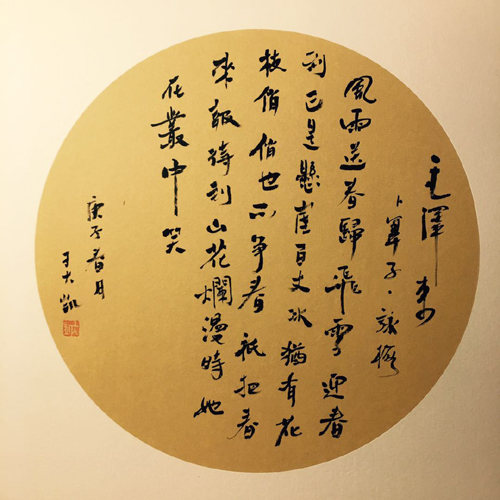 毛澤東
卜算子·詠梅
風雨送春歸飛雪迎春
到已是懸崖百丈冰猶有花
枝俏俏也不争春祇把春
來報待到山花爛漫時她
在叢中笑
庚子春月
大凱